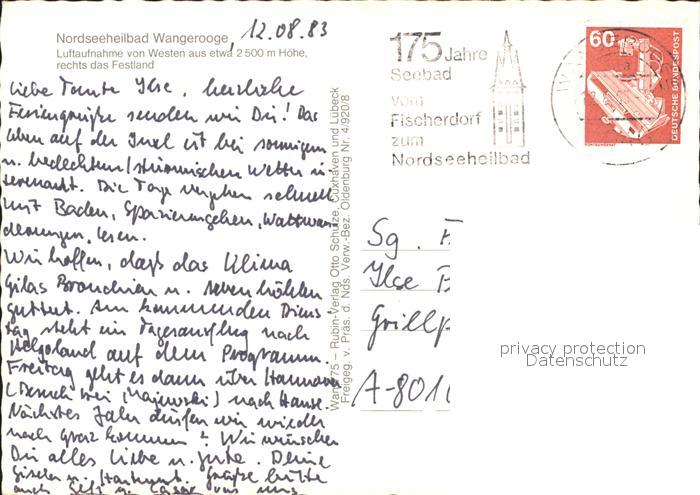 Nordseeheilbad Wangerooge, 12.08.83
Luftaufnahme von Westen aus etwa 2 500 m Höhe,
rechts das Festland
Liebe Tante Ilse, herzliche
Feriengrüße senden wir Dir! Das
Leben auf der Insel ist bei sonnigem
u. bedecktem/stürmischen Wetter
Die Tage vergehen schnell
mit Baden, Spazierengehen, Wattwan
derungen, Lesen.
Wir hoffen, daß das Klima
Gilas Bronchien u. Nebenhöhlen
guttut. Am kommenden Diens-
tag steht ein Tagesausflug nach
Helgoland auf dem Programm.
Freitag geht es dann über Hannover
(Besuch bei Majewski) nach Hause.
Nächstes Jahr dürfen wir wieder
nach Graz kommen? Wir wünschen
Dir alles Liebe u. Gute. Deine
Gisela u. Hartmut. Grüße bitte
auch u. von uns
Wang 775 – Rubin-Verlag Otto Schulze, Cuxhaven und Lübeck
Freigeg. v. Präs. d. Nds. Verw.-Bez. Oldenburg Nr. 4/920/8
175 Jahre
Seebad
vom
Fischerdorf
zum
Nordseeheilbad
60
DEUTSCHE BUNDESPOST
Sg. F
Ilse B
Grillp
A-801
privacy protection
Datenschutz